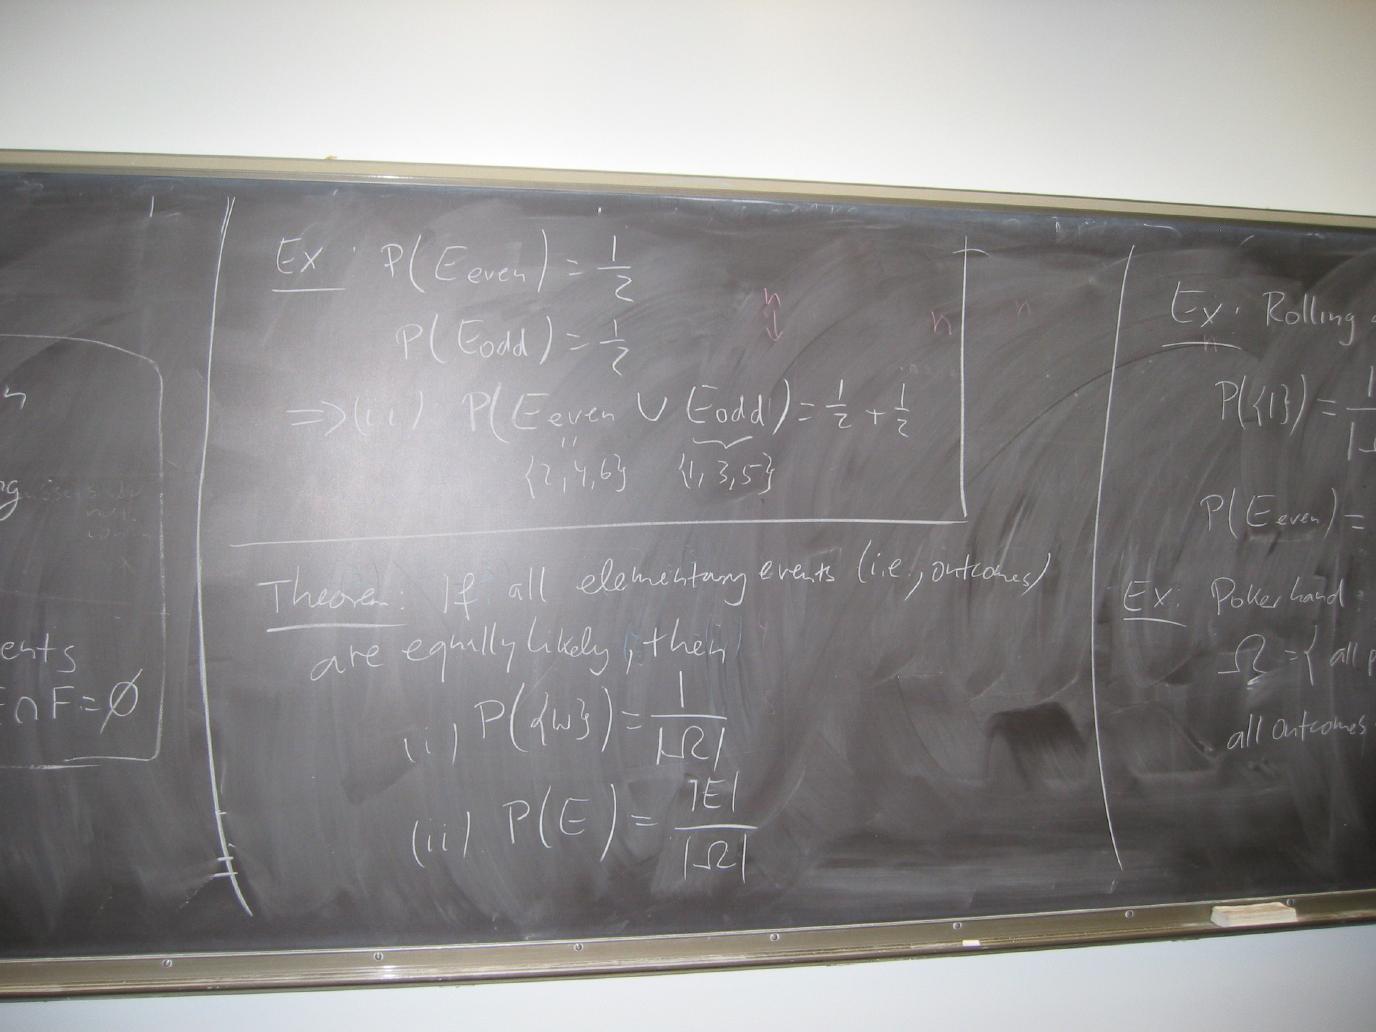 n
g
ents
E∩F=∅
Ex: P(Eeven) = 1/2
P(Eodd) = 1/2
=> (ii) P(Eeven ∪ Eodd) = 1/2 + 1/2
{2,4,6} {1,3,5}
Theorem: If all elementary events (i.e., outcomes)
are equally likely, then
(i) P({w}) = 1/|Ω|
(ii) P(E) = |E|/|Ω|
n
n
n
n
Ex: Rolling
P({1}) = 1/|Ω
P(Eeven) =
Ex: Poker hand :
Ω = { all p
all outcomes